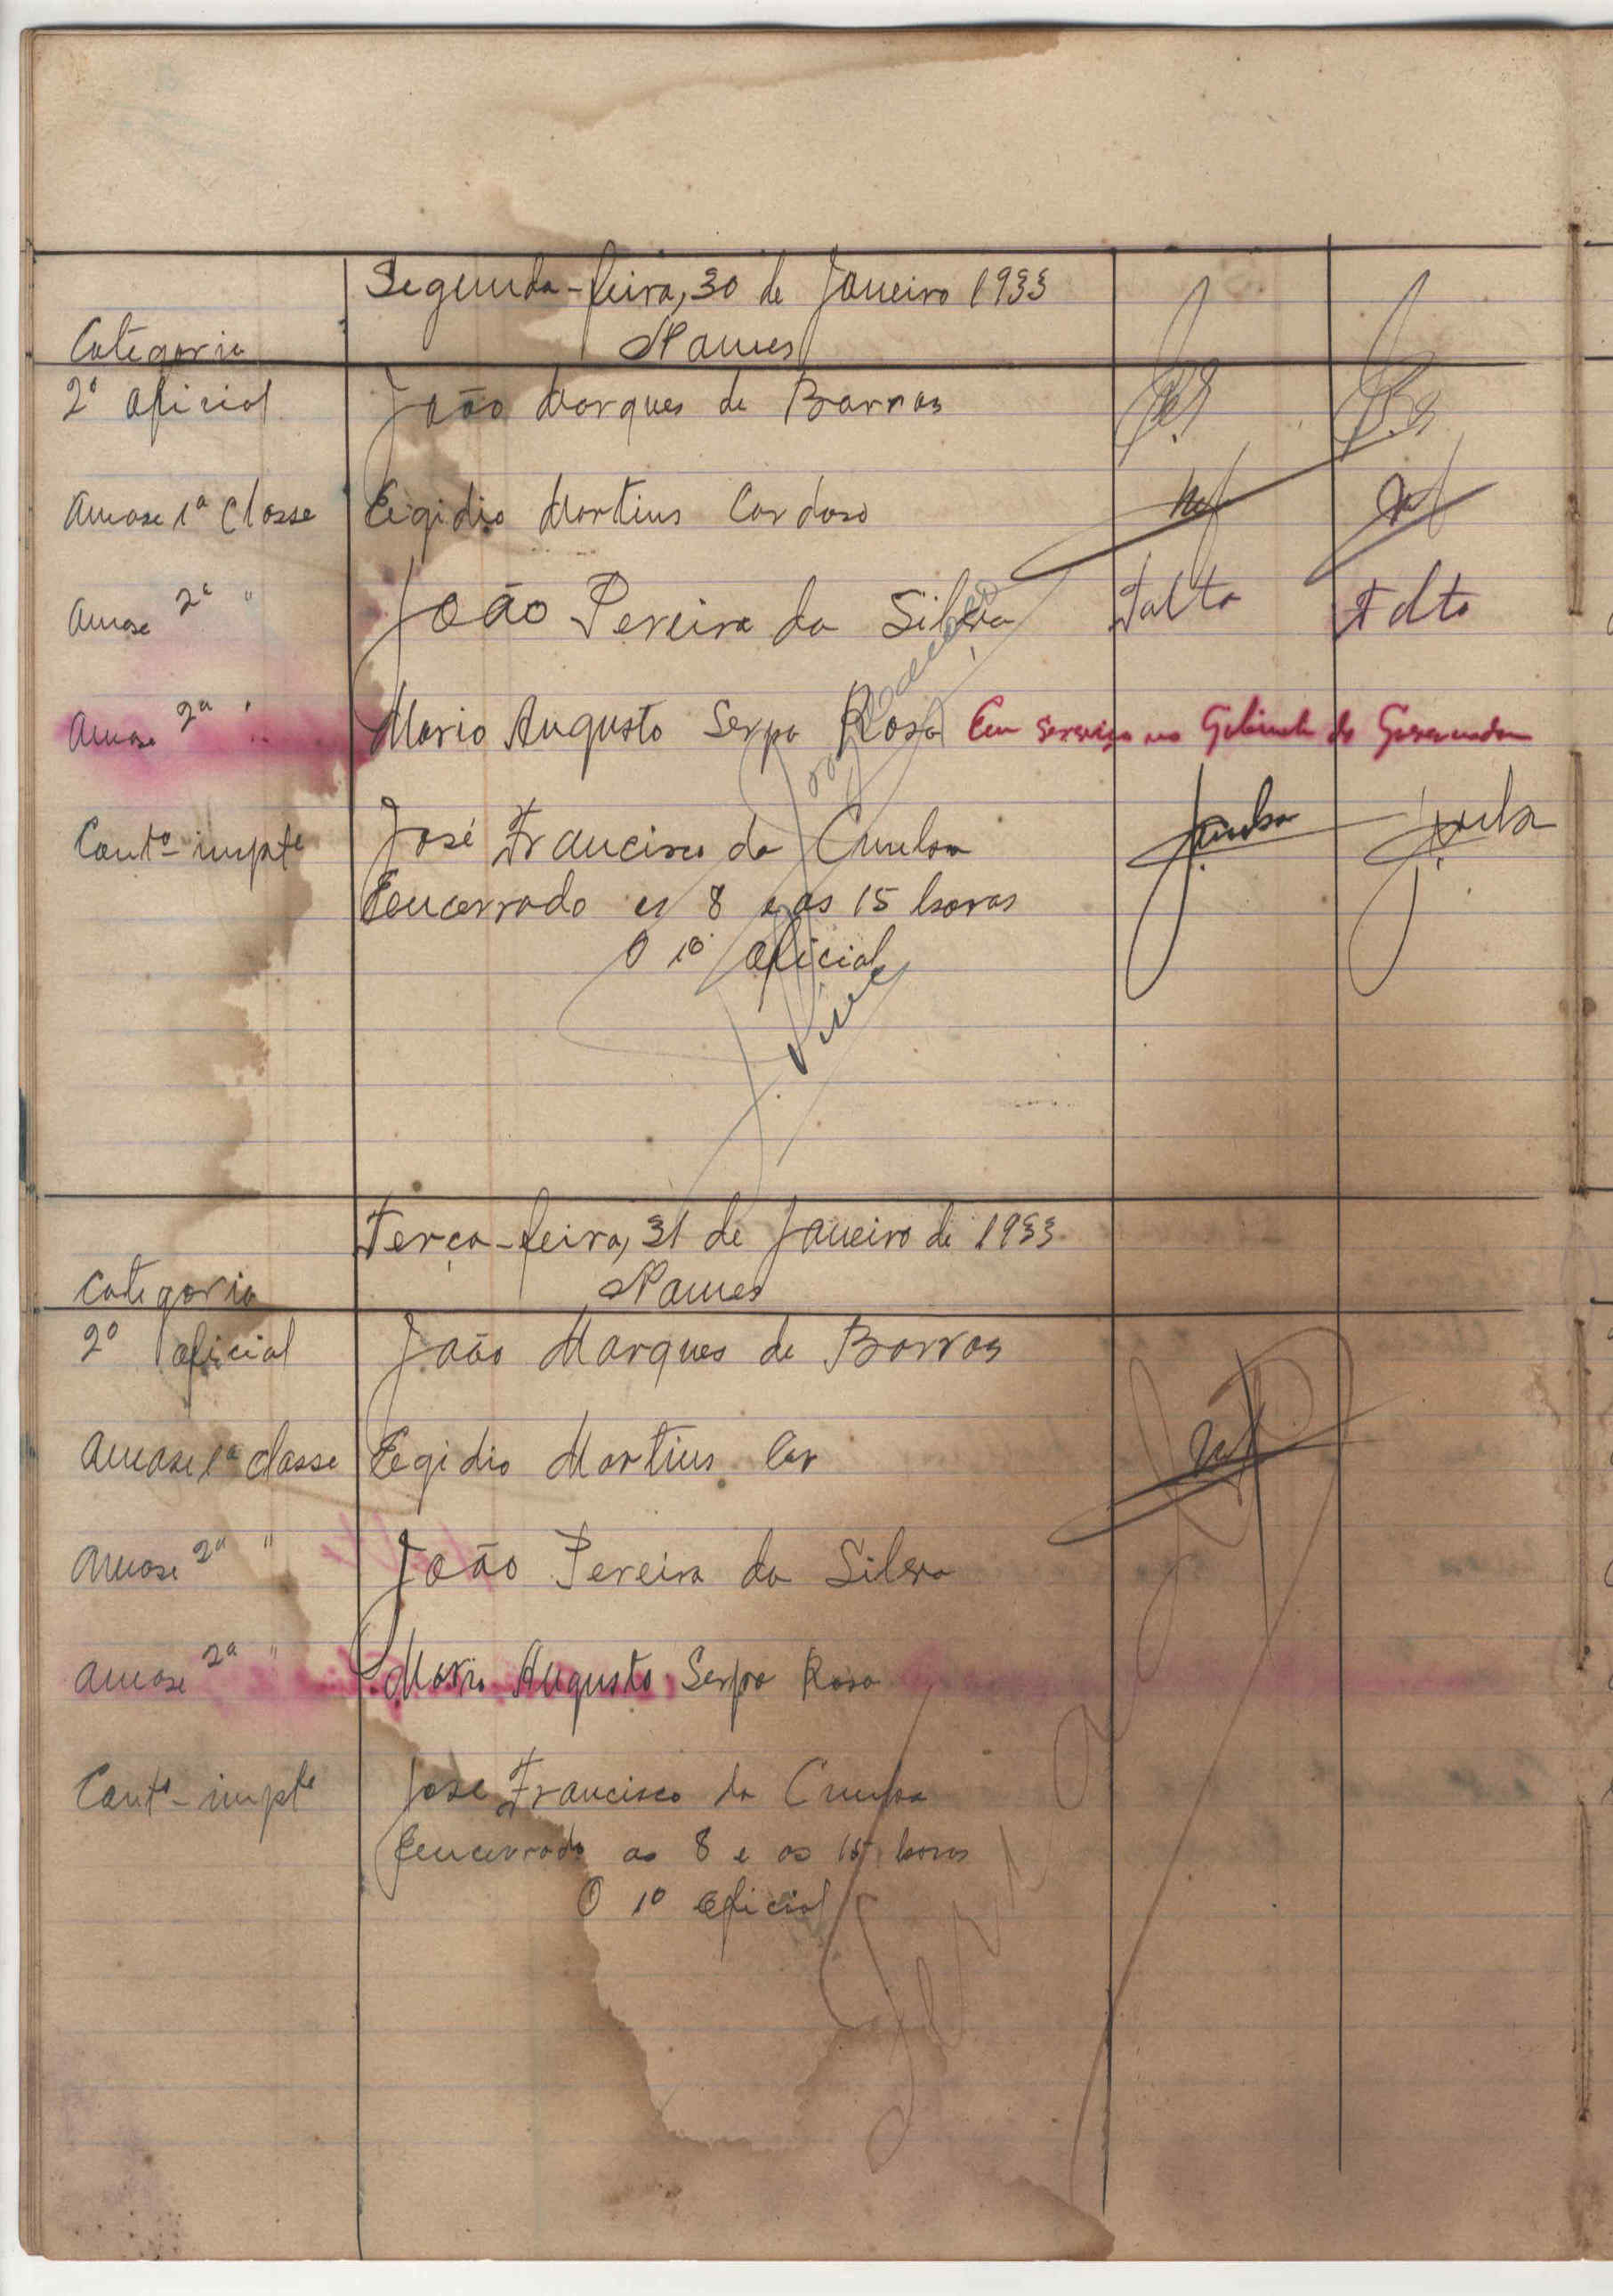 Segunda-feira, 30 de Janeiro 1933
Categoria Nomes
2º oficial João Marques de Barros
Amase 1ª Classe Egidio Martins Cardoso
Amase 2ª " João Pereira da Silva Falta Falta
Amase 2ª " Mario Augusto Serpa Rosa Em serviço no Gabinete do Governador
Contº impte José Francisco da Cunha
Encerrado as 8 e as 15 horas
O 1º oficial
Terça-feira, 31 de Janeiro de 1933
Categoria Nomes
2º oficial João Marques de Barros
Amase 1ª classe Egidio Martins Car
Amase 2ª " João Pereira da Silva
Amase 2ª " Mario Augusto Serpa Rosa
Contº impte José Francisco da Cunha
Encerrado as 8 e as 15 horas
O 1º oficial